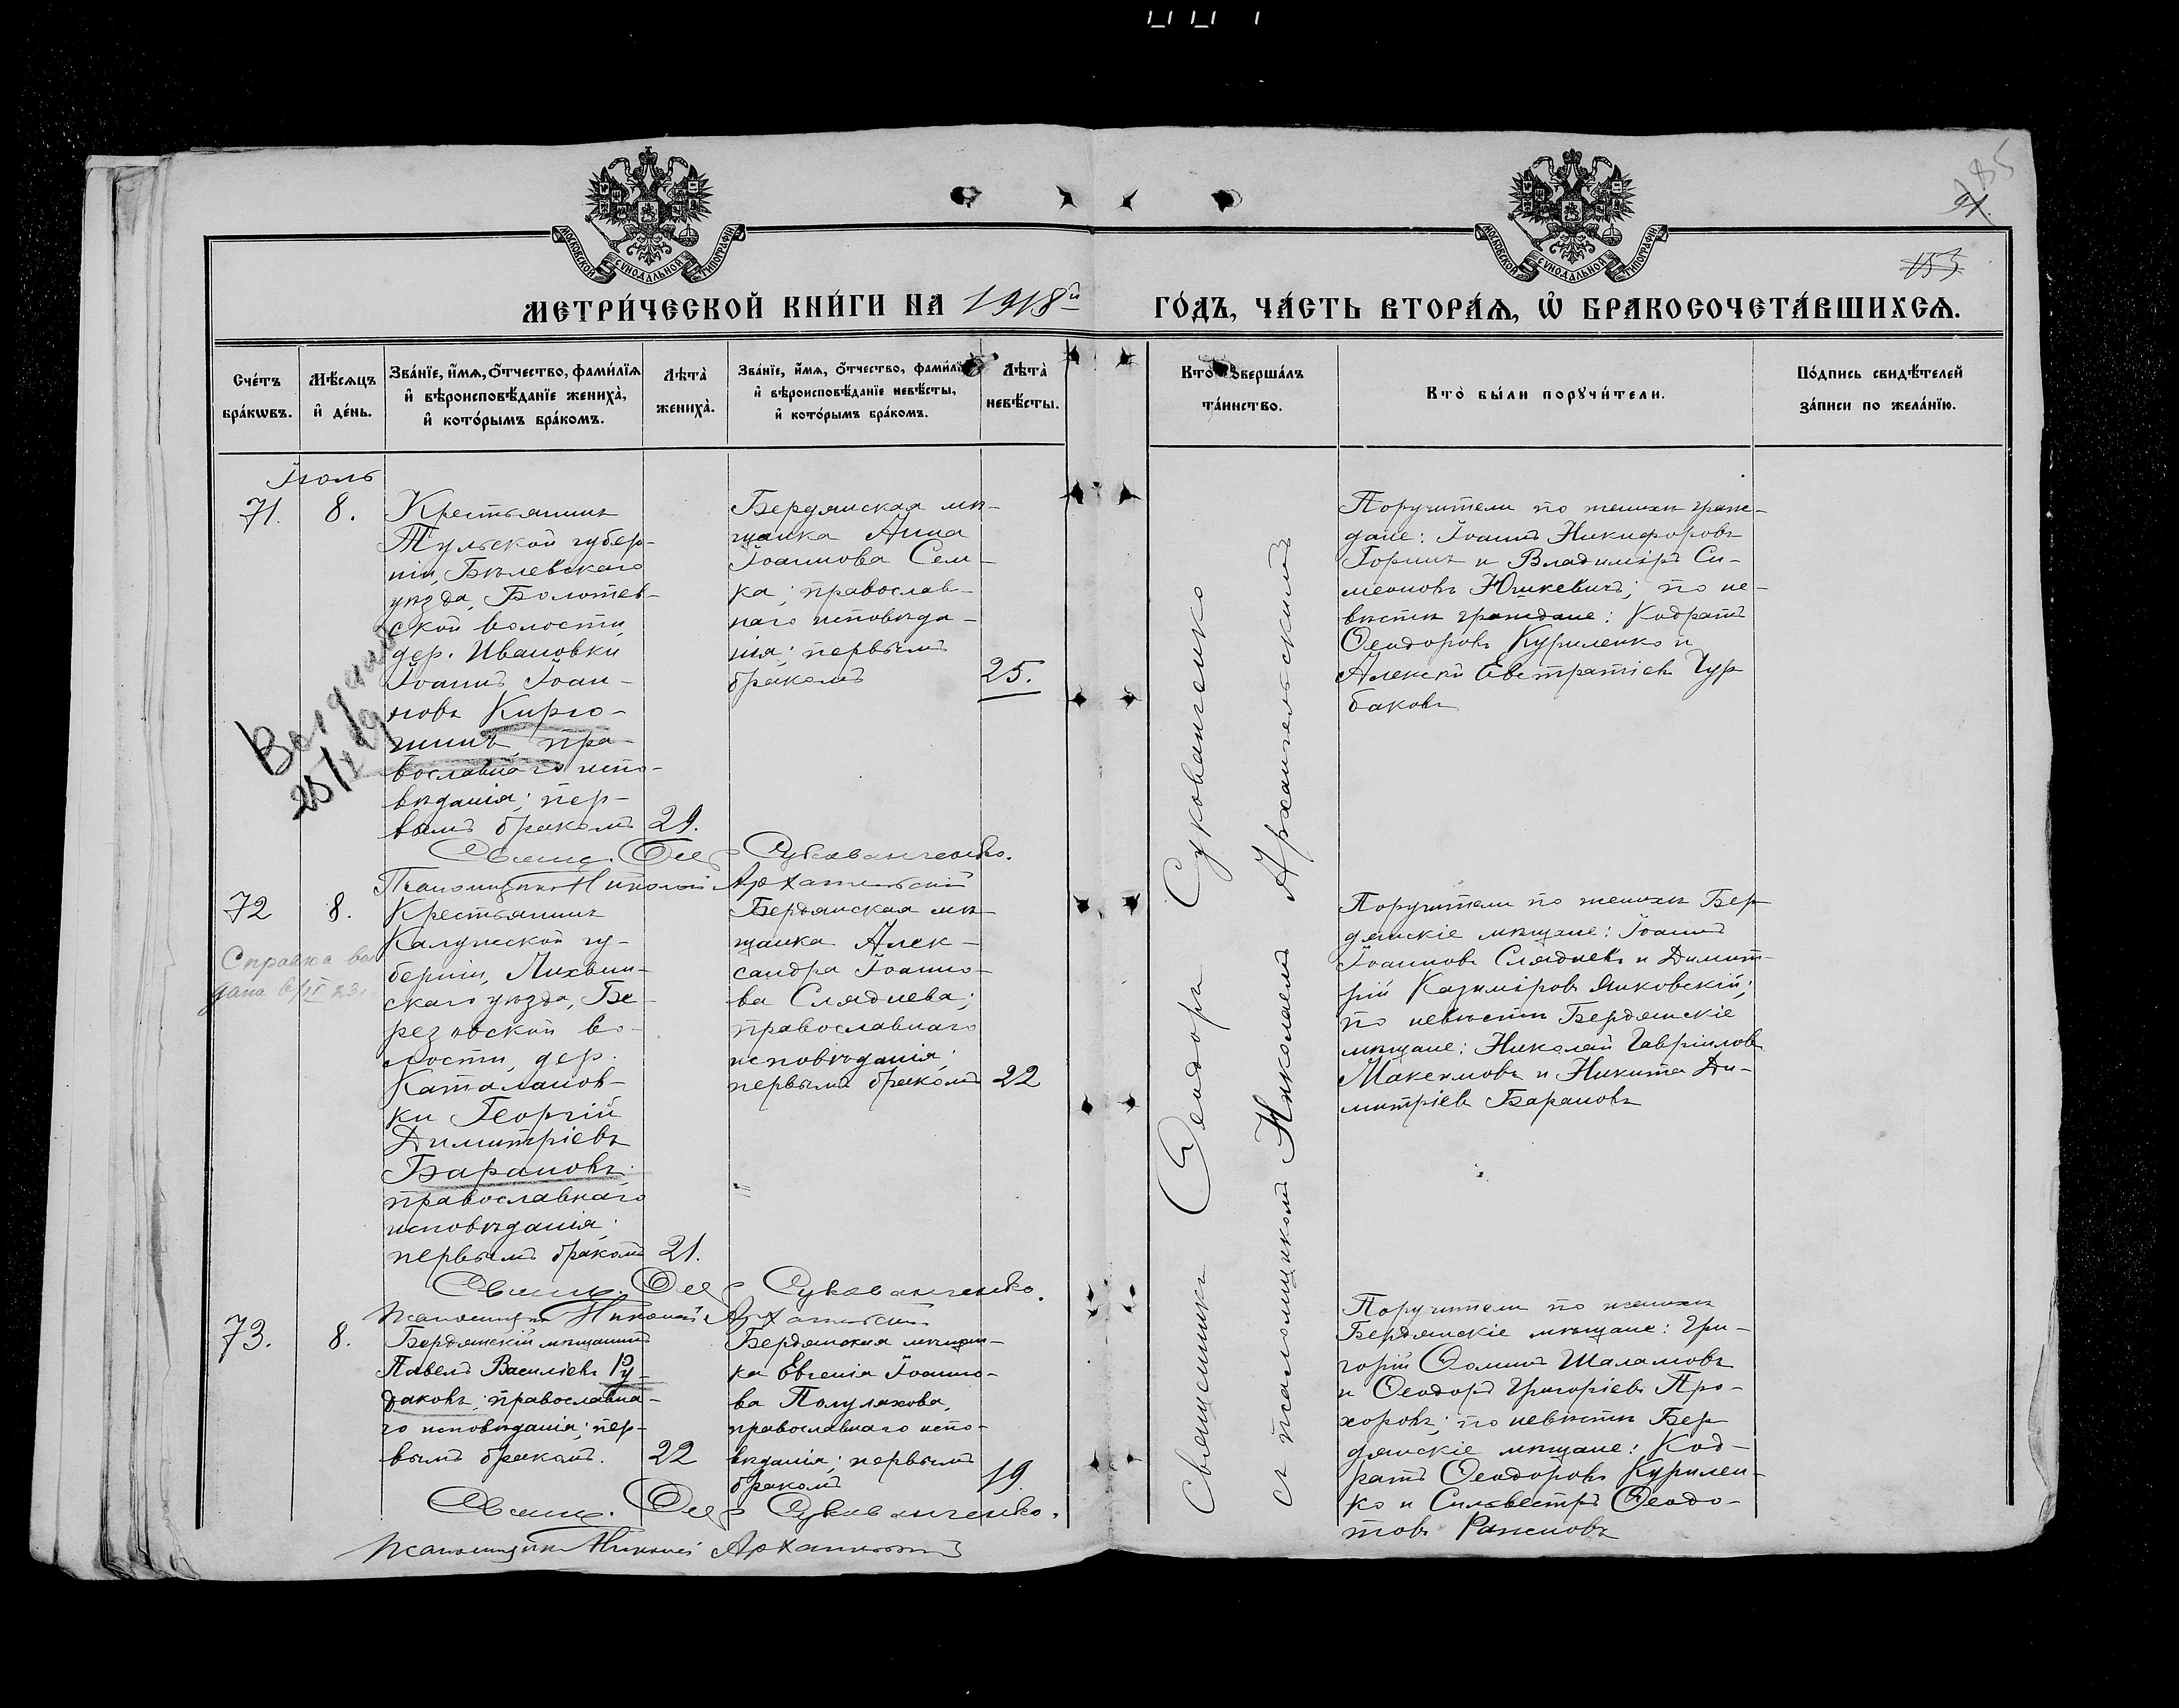 185
91.
153
МОСКОВСКОЙ СѴНОДАЛЬНОЙ ТИПОГРАФІИ
МОСКОВСКОЙ СѴНОДАЛЬНОЙ ТИПОГРАФІИ
МЕТРИ́ЧЕСКОЙ КНИ́ГИ НА 1918й
ГО́ДЪ, ЧА́СТЬ ВТОРА́Ѧ, Ѽ БРАКОСОЧЕТА́ВШИХСѦ.
Сче́тъ
бра́кѡвъ.
Мѣ́сѧцъ
и҆ де́нь.
Зва́нїе, и҆́мѧ, ѻ҆́тчество, фами́лїѧ
и҆ вѣроисповѣ́данїе жениха̀,
и҆ кото́рымъ бра́комъ.
Лѣта̀
жениха̀.
Зва́нїе, и҆́мѧ, ѻ҆́тчество, фами́лїѧ
и҆ вѣроисповѣ́данїе невѣ́сты,
и҆ кото́рымъ бра́комъ.
Лѣта̀
невѣ́сты.
Кто̀ соверша́лъ
та́инство.
Кто̀ бы́ли порꙋчи́тели.
По́дпись свидѣ́телей
за́писи по жела́нїю.
Іюль
71.
8.
Крестьянинъ
Тульской губер-
ніи, Бѣлевскаго
уѣзда, Болотев-
ской волости,
дер. Ивановки
Іоаннъ Іоан-
новъ Кирю-
шинъ, пра-
вославнаго испо-
вѣданія; пер-
вымъ бракомъ
29.
Бердянская мѣ-
щанка Анна
Іоаннова Сем-
ка; православ-
наго исповѣда-
нія; первымъ
бракомъ
25.
Поручители по женихѣ граж-
дане: Іоаннъ Никифоровъ
Горинъ и Владиміръ Си-
меоновъ Юшкевичъ; по не-
вѣстѣ граждане: Кодратъ
Ѳеодоровъ Куриленко и
Алексѣй Евстратіевъ Чур
баковъ
25/X 19
Свящ. Ѳео Сукованченко.
Псаломщикъ Николай Архангельскій
72
8.
Справка вы
дана 6/II 23.
Крестьянинъ
Калужской гу-
берніи, Лихвин-
скаго уѣзда, Бе-
резовской во-
лости, дер.
Каталанов-
ки Георгій
Димитріевъ
Барановъ;
православнаго
исповѣданія;
первымъ бракомъ
21.
Бердянская мѣ-
щанка Алек-
сандра Іоанно-
ва Сляднева;
православнаго
исповѣданія;
первымъ бракомъ
22
Поручители по женихѣ Бер
дянскіе мѣщане: Іоаннъ
Іоанновъ Слядневъ и Димит-
рій Казиміровъ Янковскій;
по невѣстѣ Бердянскіе
мѣщане: Николай Гавріиловъ
Максимовъ и Никита Ди-
митріевъ Барановъ
Свящ. Ѳео Сукованченко.
Псаломщикъ Николай Архангельскій
73.
8.
Бердянскій мѣщанинъ
Павелъ Василіевъ Ру-
даковъ; православна-
го исповѣданія; пер-
вымъ бракомъ.
22
Бердянская мѣщан-
ка Евгенія Іоанно-
ва Полулахова,
православнаго испо-
вѣданія; первымъ
бракомъ
19.
Поручители по женихѣ
Бердянскіе мѣщане: Гри-
горій Ѳоминъ Шаламовъ
и Ѳеодоръ Григоріевъ Про-
хоровъ; по невѣстѣ Бер
дянскіе мѣщане: Код-
ратъ Ѳеодоровъ Курилен-
ко и Сильвестръ Ѳеодо-
товъ
Свящ. Ѳео Сукованченко.
Псаломщикъ Николай Архангельскій
Священникъ Ѳеодоръ Сукованченко
съ псаломщикомъ Николаемъ Архангельскимъ